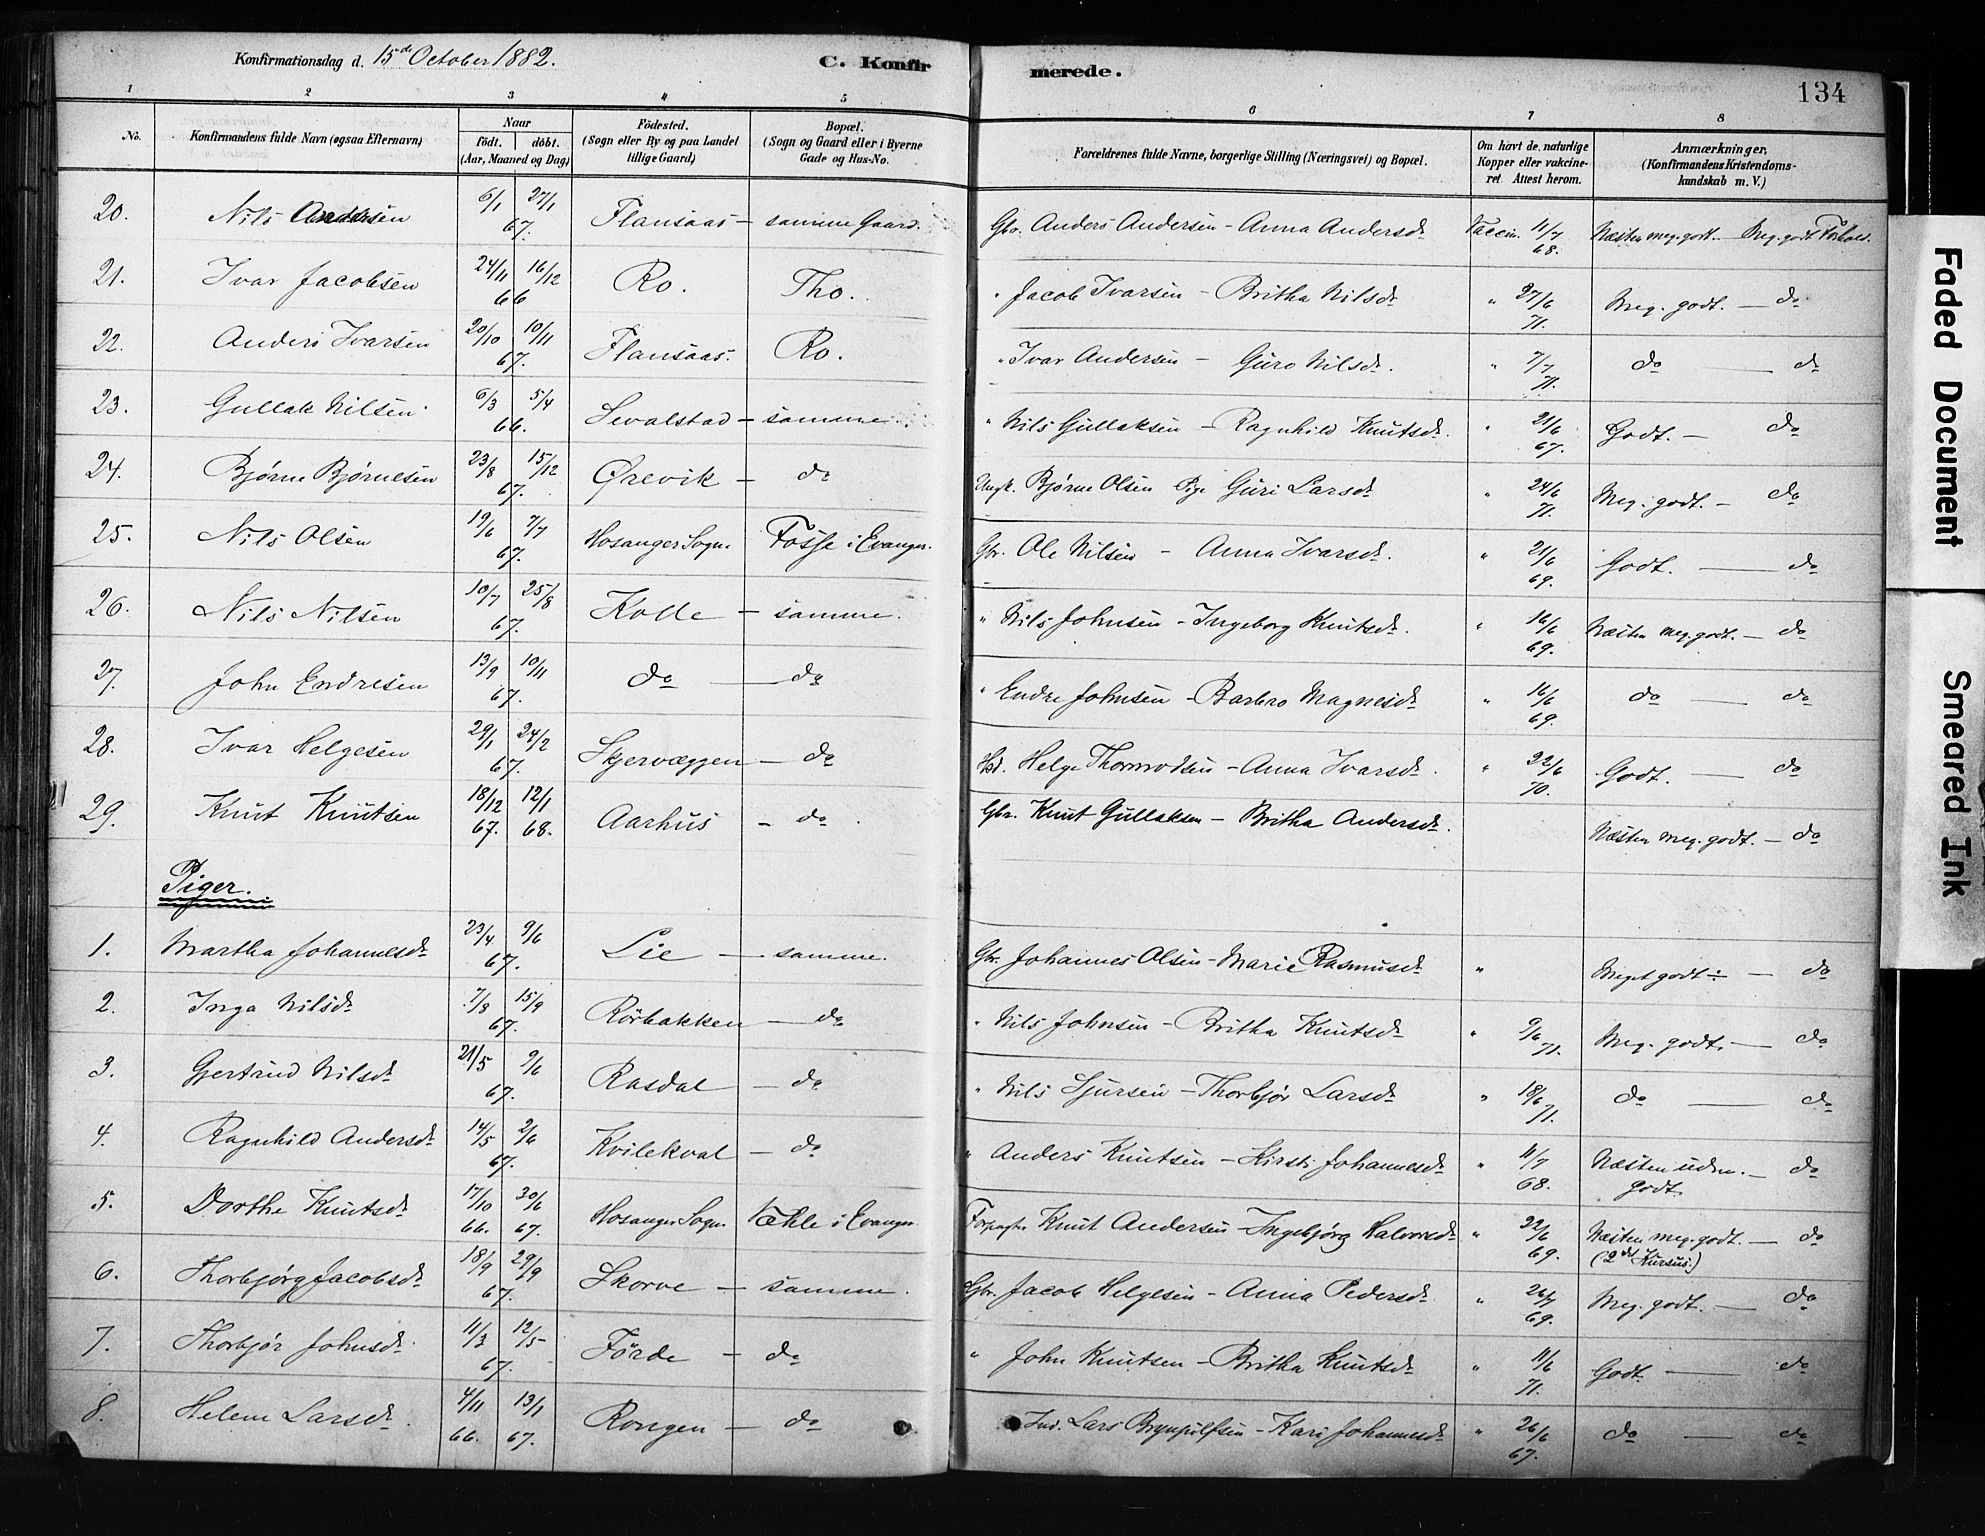 Konfirmationsdag d. 15de October 1882. C. Konfir merede. 134
1 2 3 4 5 6 7 8
No. Konfirmandens fulde Navn (ogsaa Efternavn) Naar födt. döbt. (Aar, Maaned og Dag) Födested. (Sogn eller By og paa Landet tillige Gaard) Bopæl. (Sogn og Gaard eller i Byerne Gade og Hus-No. Forældrenes fulde Navne, borgerlige Stilling (Næringsvei) og Bopæl. Om havt de naturlige Kopper eller vakcineret Attest herom. Anmærkninger, (Konfirmandens Kristendomskundskab m. V.)
20. Nils Andersen 6/1 27/1 67. Flansaas – samme Gaard. Gbr. Anders Andersen – Anna Andersdr Vaccin. 11/7 68. Næsten meg. godt. – Meg. godt Forhold.
21. Ivar Jacobsen 24/11 16/12 66 Ro. Tho. " Jacob Ivarsen – Britha Nilsdr " 27/6 71. Meg. godt. – do
22. Anders Ivarsen 20/10 10/11 67. Flansaas. Ro. " Ivar Andersen – Guro Nilsdr. " 7/7 71. do – do
23. Gullak Nilsen 6/3 5/4 66. Sevalstad – samme. " Nils Gullaksen – Ragnhild Knutsdr. " 21/6 67. Godt. – do
24. Bjørne Bjørnesen 23/8 15/12 67. Ørevik – do Ungk. Bjørne Olsen Pige Guri Larsdr " 24/6 71. Meg. godt. – do
25. Nils Olsen 19/6 7/7 67. Hosanger Sogn Fosse i Evanger. Gbr. Ole Nilsen – Anna Ivarsdr. " 21/6 69. Godt. – do
26. Nils Nilsen 10/7 25/8 67. Kolle – samme. " Nils Johnsen – Ingeborg Knutsdr. " 16/6 69. Næsten meg. godt. – do
27. John Endresen 13/9 10/11 67. do – do " Endre Johnsen – Barbro Magnesdr " 16/6 69. do – do
28. Ivar Helgesen 29/1 24/2 67. Skjervæggen – do Hsd. Helge Thormodsen – Anna Ivarsdr. " 22/6 70. Godt. – do
29. Knut Knutsen 18/12 67. 12/1 68. Aarhus – do. Gbr. Knut Gullaksen – Britha Andersdr. Næsten meg. godt. – do
Piger.
1. Martha Johannesdr 23/4 9/6 67. Lie – samme. Gbr. Johannes Olsen – Marie Rasmusdr " Meget godt ÷ – do
2. Inga Nilsdr 7/8 15/9 67. Rörbakken – do " Nils Johnsen – Britha Knutsdr " 9/6 71. Meg. godt. – do
3. Gjertrud Nilsdr 21/5 9/6 67. Rasdal – do " Nils Sjursen – Thorbjør Larsdr " 18/6 71. do – do
4. Ragnhild Andersdr 14/5 2/6 67. Kvilekval – do " Anders Knutsen – Kirsti Johannesdr " 11/7 68. Næsten udm. godt. – do
5. Dorthe Knutsdr 17/10 66. 30/6 67. Hosanger Sogn. Væhle i Evanger. Forpagter Knut Andersen – Ingebjørg Halvorsdr " 22/6 69. Næsten meg. godt. – do (2det Kursus.)
6. Thorbjørg Jacobsdr 18/9 29/9 67. Skorve – samme. Gbr. Jacob Helgesen – Anna Pedersdr " 26/7 69. Meg. godt. – do
7. Thorbjør Johnsdr 11/3 12/5 67. Förde – do " John Knutsen – Britha Knutsdr " 11/6 71. Godt. – do
8. Helene Larsdr. 4/11 66. 13/1 67. Rongen – do Ind. Lars Brynjulfsen – Kari Johannesdr " 26/6 67. do – do
Faded Document
Smeared Ink